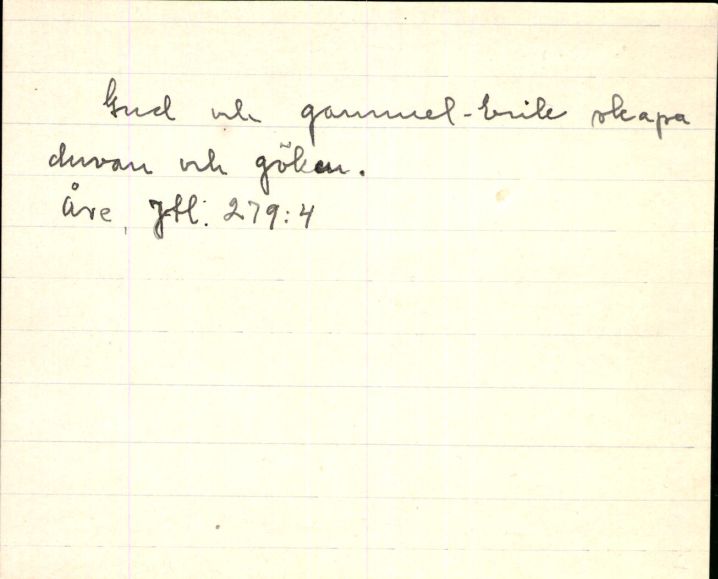 Gud och gammel-Erik skapa
duvan och göken.
Åre, Jtl. 279:4